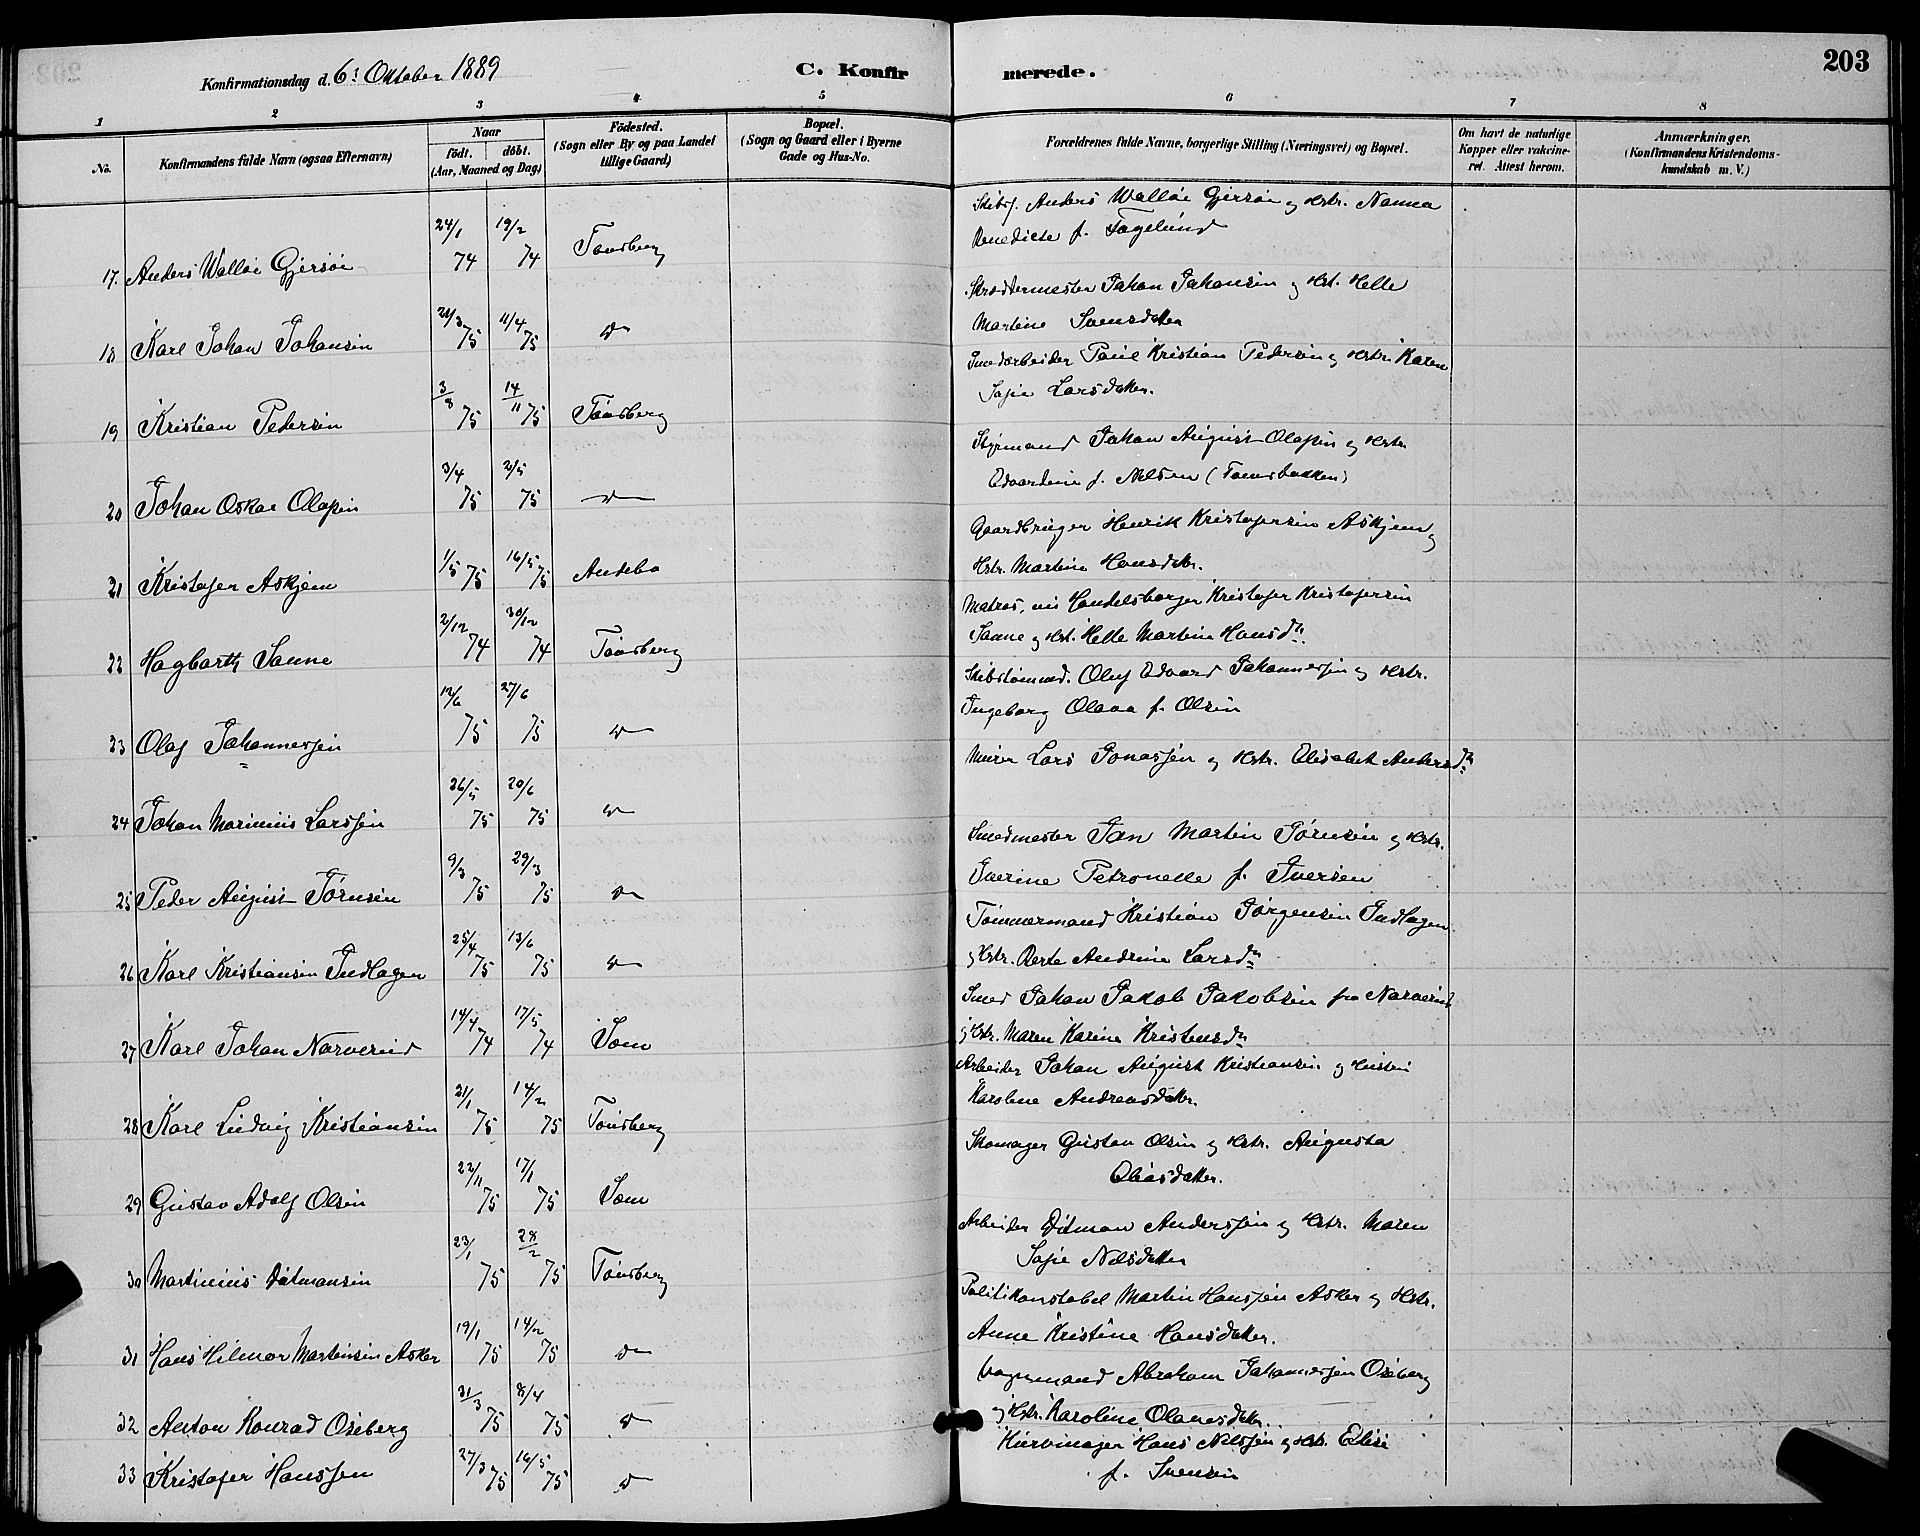 203
Konfirmationsdag d. 6: Oktober 1889
C. Konfirmerede.
1 2 3 4 5 6 7 8
No.
Konfirmandens fulde Navn (ogsaa Efternavn)
Naar
födt. döbt.
(Aar, Maaned og Dag)
Födested.
(Sogn eller By og paa Landet
tillige Gaard)
Bopæl.
(Sogn og Gaard eller i Byerne
Gade og Hus-No.
Forældrenes fulde Navne, borgerlige Stilling (Næringsvei) og Bopæl.
Om havt de naturlige
Kopper eller vakcine-
ret. Attest herom.
Anmærkninger.
(Konfirmandens Kristendoms-
kundskab m. V.)
17. Anders Walløe Gjersøe 24/1 74 19/2 74 Tønsberg
Skibsf. Anders Walløe Gjersøe og Hstr. Nanna
Benedicte f. Fagelund
18 Karl Johan Johansen 21/3 75 11/4 75 do
Skræddermester Johan Johansen og Hst. Helle
Martine Svensdatter
19 Kristian Pedersen 3/8 75 14/11 75 Tønsberg
Smedarbeider Paul Kristian Pedersen og Hstr. Karen
Sofie Larsdatter.
20 Johan Oskar Olafsen 3/4 75 2/5 75 do
Styrmand Johan August Olafsen og Hstr.
Edvardine f. Nelsen (Tomsbakken)
21 Kristofer Askjem 1/5 75 16/5 75 Andebo
Gaardbruger Henrik Kristofersen Askjem og
Hstr. Martine Hansdatr.
22 Hagbarth Sanne 2/12 74 30/12 74 Tønsberg
Matros, nu Handelsborger Kristofer Kristofersen
Sanne og Hst. Helle Martine Hansdtr
23 Olaf Johannessen 12/6 75 27/6 75 do
Skibstømmd. Oluf Edvard Johannessen og Hstr.
Ingeborg Olava f. Olsen
24 Johan Marinius Larssen 26/5 75 20/6 75 do
Murer Lars Jonassen og Hstr. Elisabet Andersdtr
25 Peder August Jørnsen 9/3 75 29/3 75 do
Smedmester Jan Martin Jørnsen og Hstr.
Iverine Petronelle f. Iversen
26 Karl Kristiansen Indlagen 25/4 75 13/6 75 do
Tømmermand Kristian Jørgensen Indlagen
og Hstr. Berte Andrine Larsdtr
27 Karl Johan Narverud 14/4 74 17/5 74 Sem
Smed Johan Jakob Jakobsen fra Narverud
og Hstr. Maren Karine Kristensdtr
28 Karl Ludvig Kristiansen 21/1 75 14/2 75 Tønsberg
Arbeider Johan August Kristiansen og Hustru
Karoline Andreasdatr.
29 Gustav Adolf Olsen 22/11 75 17/1 75 Sem
Skomager Gustav Olsen og Hstr. Augusta
Oliasdatter.
30 Martinius Ditmansen 23/1 75 28/2 75 Tønsberg
Arbeider Ditman Anderssen og Hstr. Maren
Sofie Nelsdatter
31 Hans Hilmar Martinsen Asker 19/1 75 14/2 75 do
Politikonstabel Martin Hanssen Asker og Hstr.
Anne Kristine Hansdatter.
32 Anton Konrad Oseberg 31/3 75 8/4 75 do
Vognmand Abraham Johannessen Oseberg
og Hstr. Karoline Olavesdatr.
33 Kristofer Hanssen 27/3 75 16/5 75 do
Kurvmager Hans Nelssen og Hstr. Elise
f. Svensen